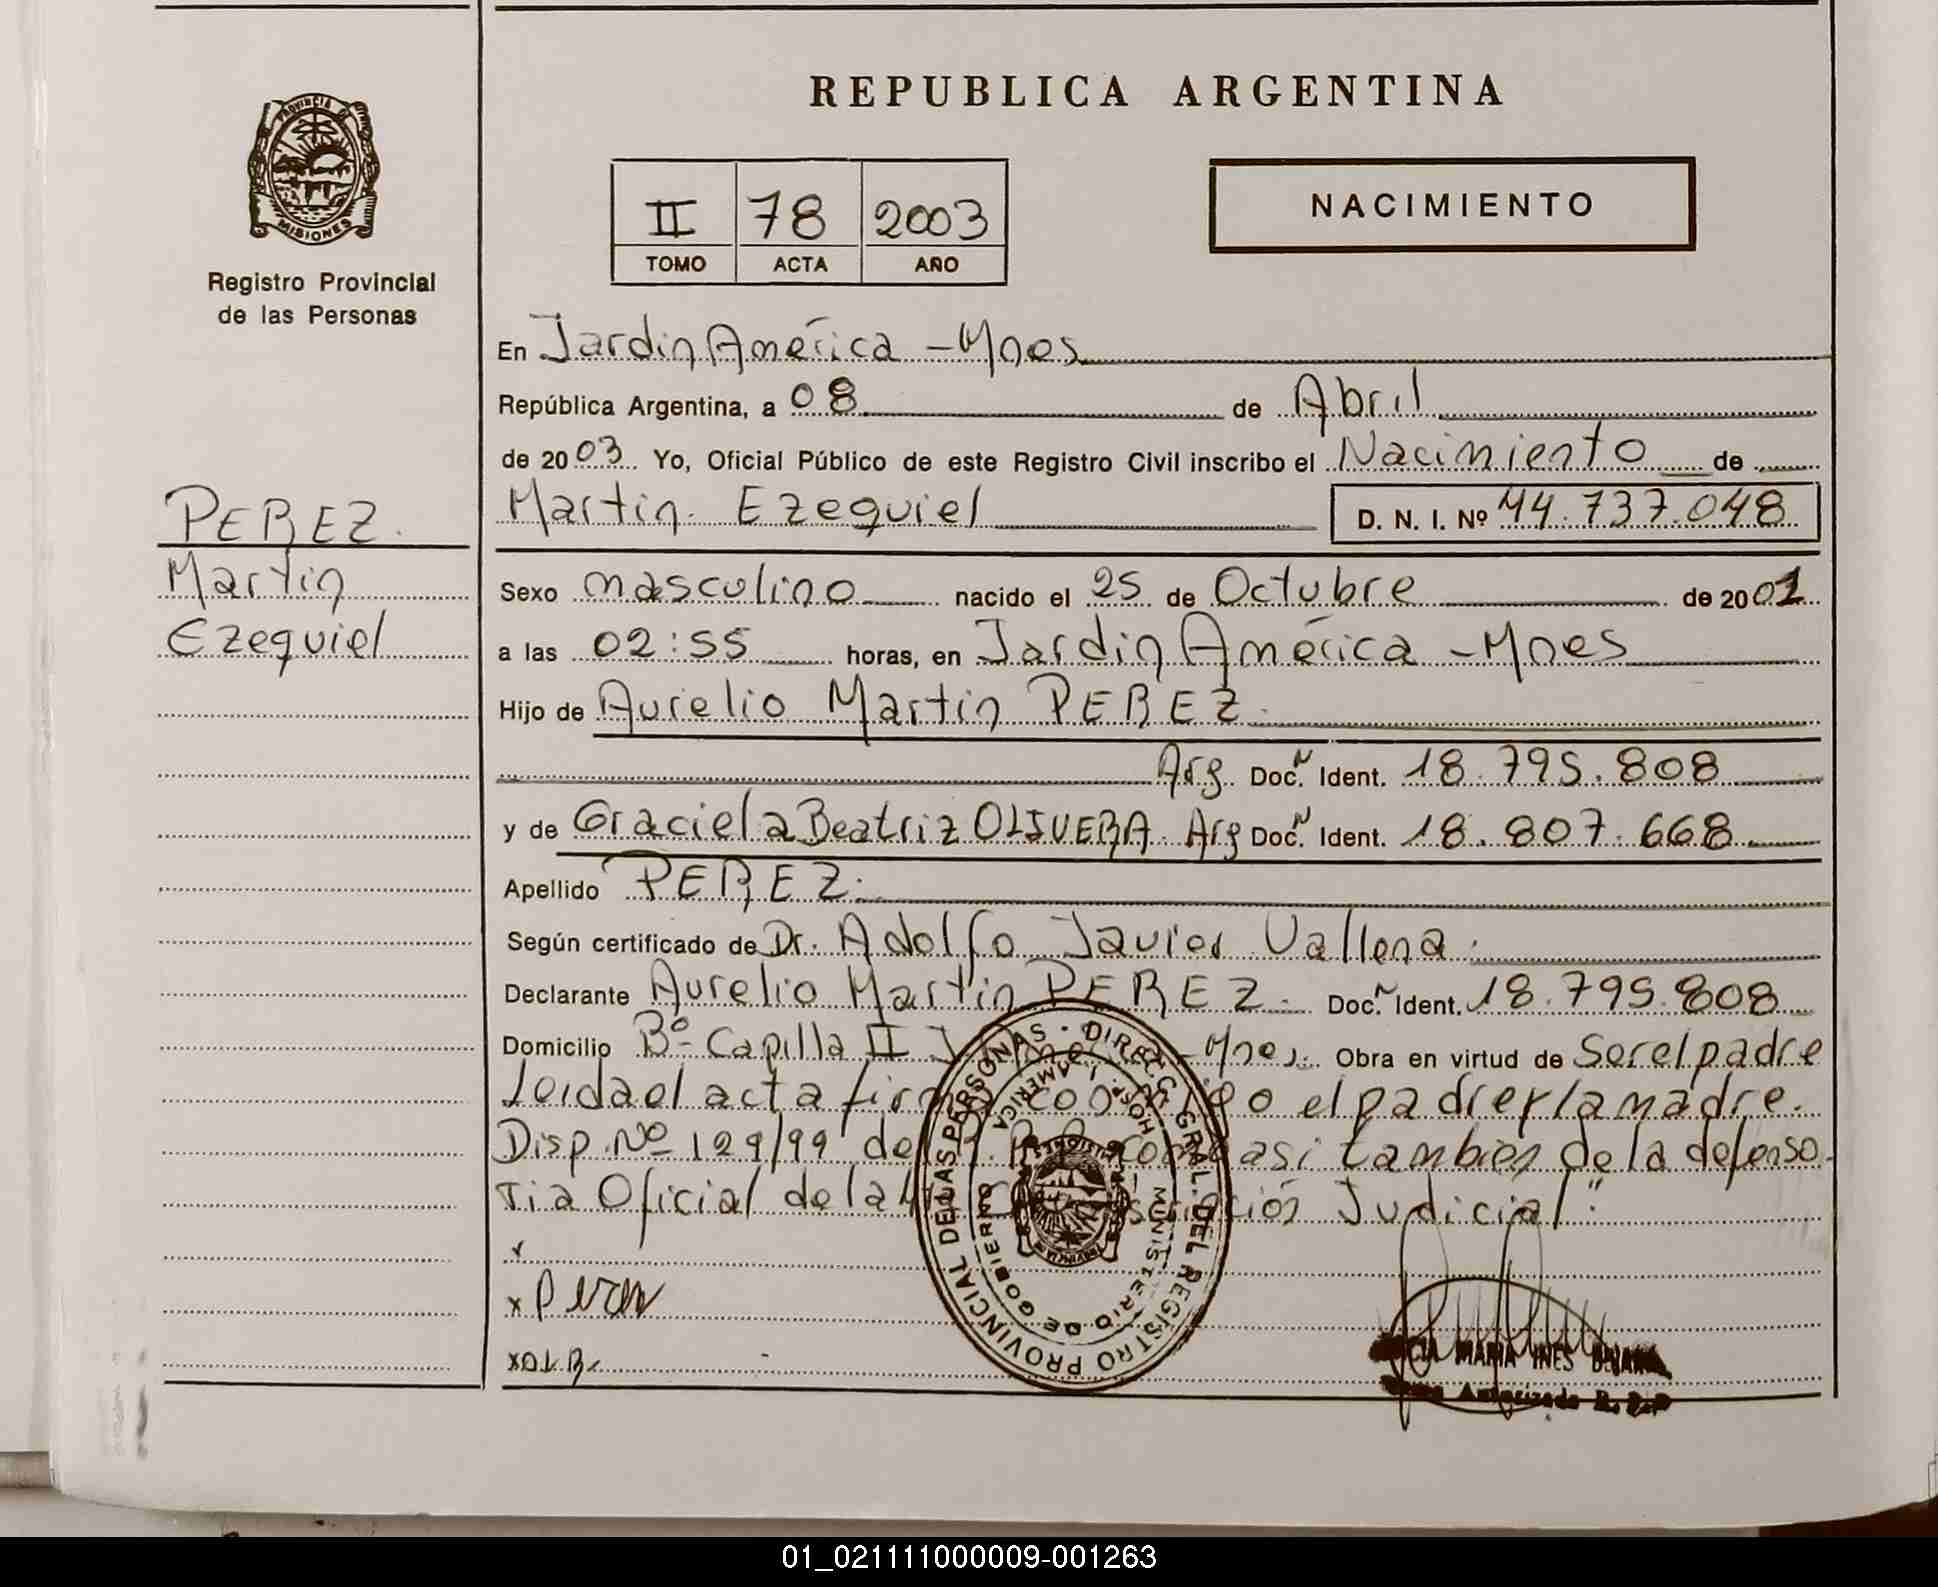 REPUBLICA ARGENTINA
PROVINCIA DE MISIONES
Registro Provincial
de las Personas
II 78 2003
TOMO ACTA AÑO
NACIMIENTO
PEREZ.
Martin
Ezequiel
En Jardin América - Mnes
República Argentina, a 08 de Abril
de 2003. Yo, Oficial Público de este Registro Civil inscribo el Nacimiento de
Martin Ezequiel D. N. I. Nº 44.737.048
Sexo masculino nacido el 25 de Octubre de 2001
a las 02:55 horas, en Jardin América - Mnes
Hijo de Aurelio Martin PEREZ.
Arg. Doc. Ident. 18.795.808
y de Graciela Beatriz OLIVERA. Arg Doc. Ident. 18.807.668
Apellido PEREZ.
Según certificado de Dr. Adolfo Javier Vallena.
Declarante Aurelio Martin PEREZ. Doc. Ident. 18.795.808
Domicilio Bº Capilla II - Mnes. Obra en virtud de Ser el padre
Leida el acta el padre y la madre.
Disp. Nº 129/99 de asi tambien de la defenso
ria Oficial de la Judicial".
x Perez
x O.L.B.
DIRECC. GRAL. DEL REGISTRO PROVINCIAL DE LAS PERSONAS
MINISTERIO DE GOBIERNO
MARIA INES
Autorizada R.P.P
01_021111000009-001263